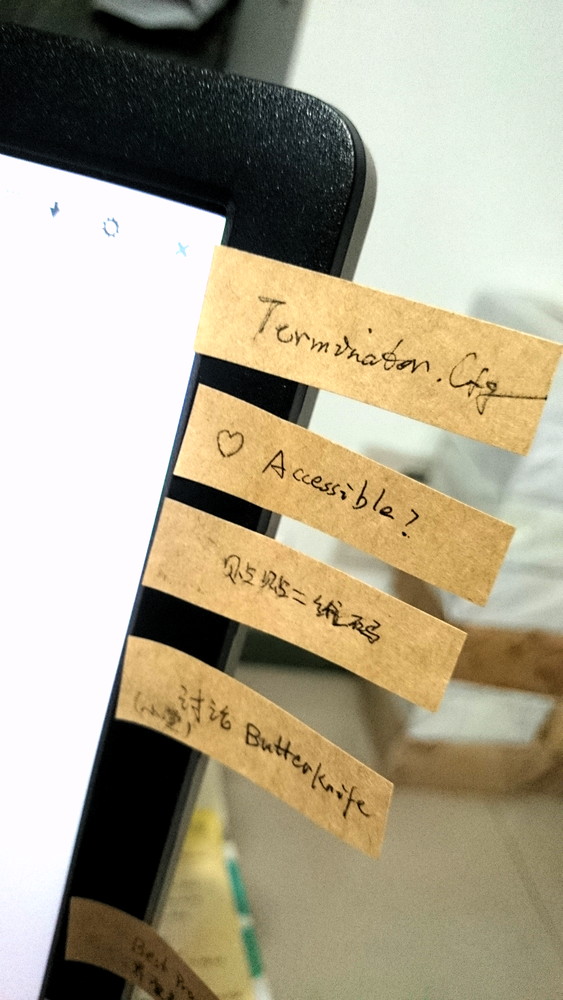 Terminator.Cfg
♡ Accessible?
贴贴二维码
讨论 Butterknife
Best Pra